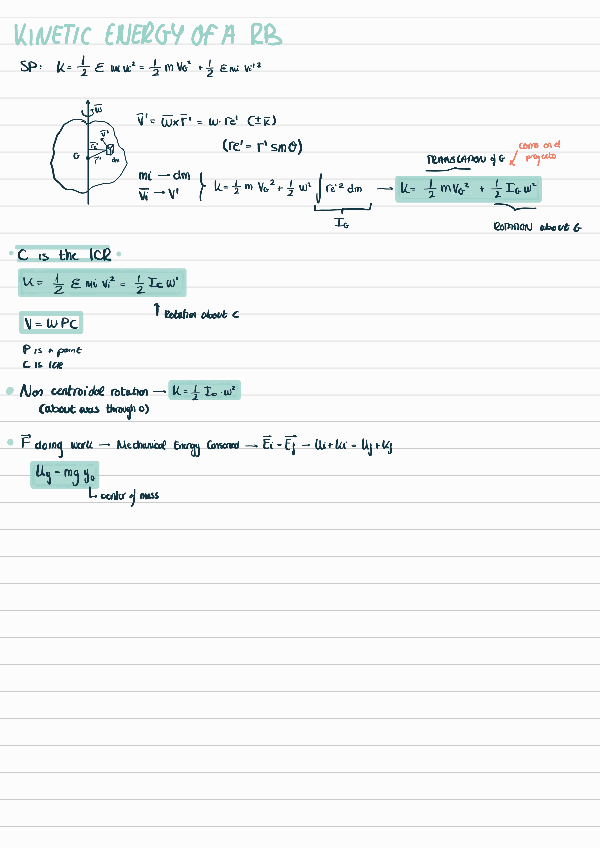 KINETIC ENERGY OF A RB
SP: K = 1/2 Σ mi vi² = 1/2 m VG² + 1/2 Σ mi vi'²
ω̄
V̄'
G
rc'
r̄'
dm
V̄' = ω̄ x r̄' = ω · rc' (± k̄)
(rc' = r' sinθ)
mi → dm
V̄i → V'
} K = 1/2 m VG² + 1/2 ω² ∫ rc'² dm → K = 1/2 m VG² + 1/2 IG ω²
IG
TRANSLATION of G
ROTATION about G
• C is the ICR •
K = 1/2 Σ mi vi² = 1/2 Ic ω²
↑ Rotation about C
V = ω PC
P is a point
C is ICR
• Non centroidal rotation → K = 1/2 Io · ω²
(about axis through O)
• F⃗ doing work → Mechanical Energy Conserved → Ei = Ef → Ui + Ki = Uf + Kf
Ug = mg yG
↳ center of mass